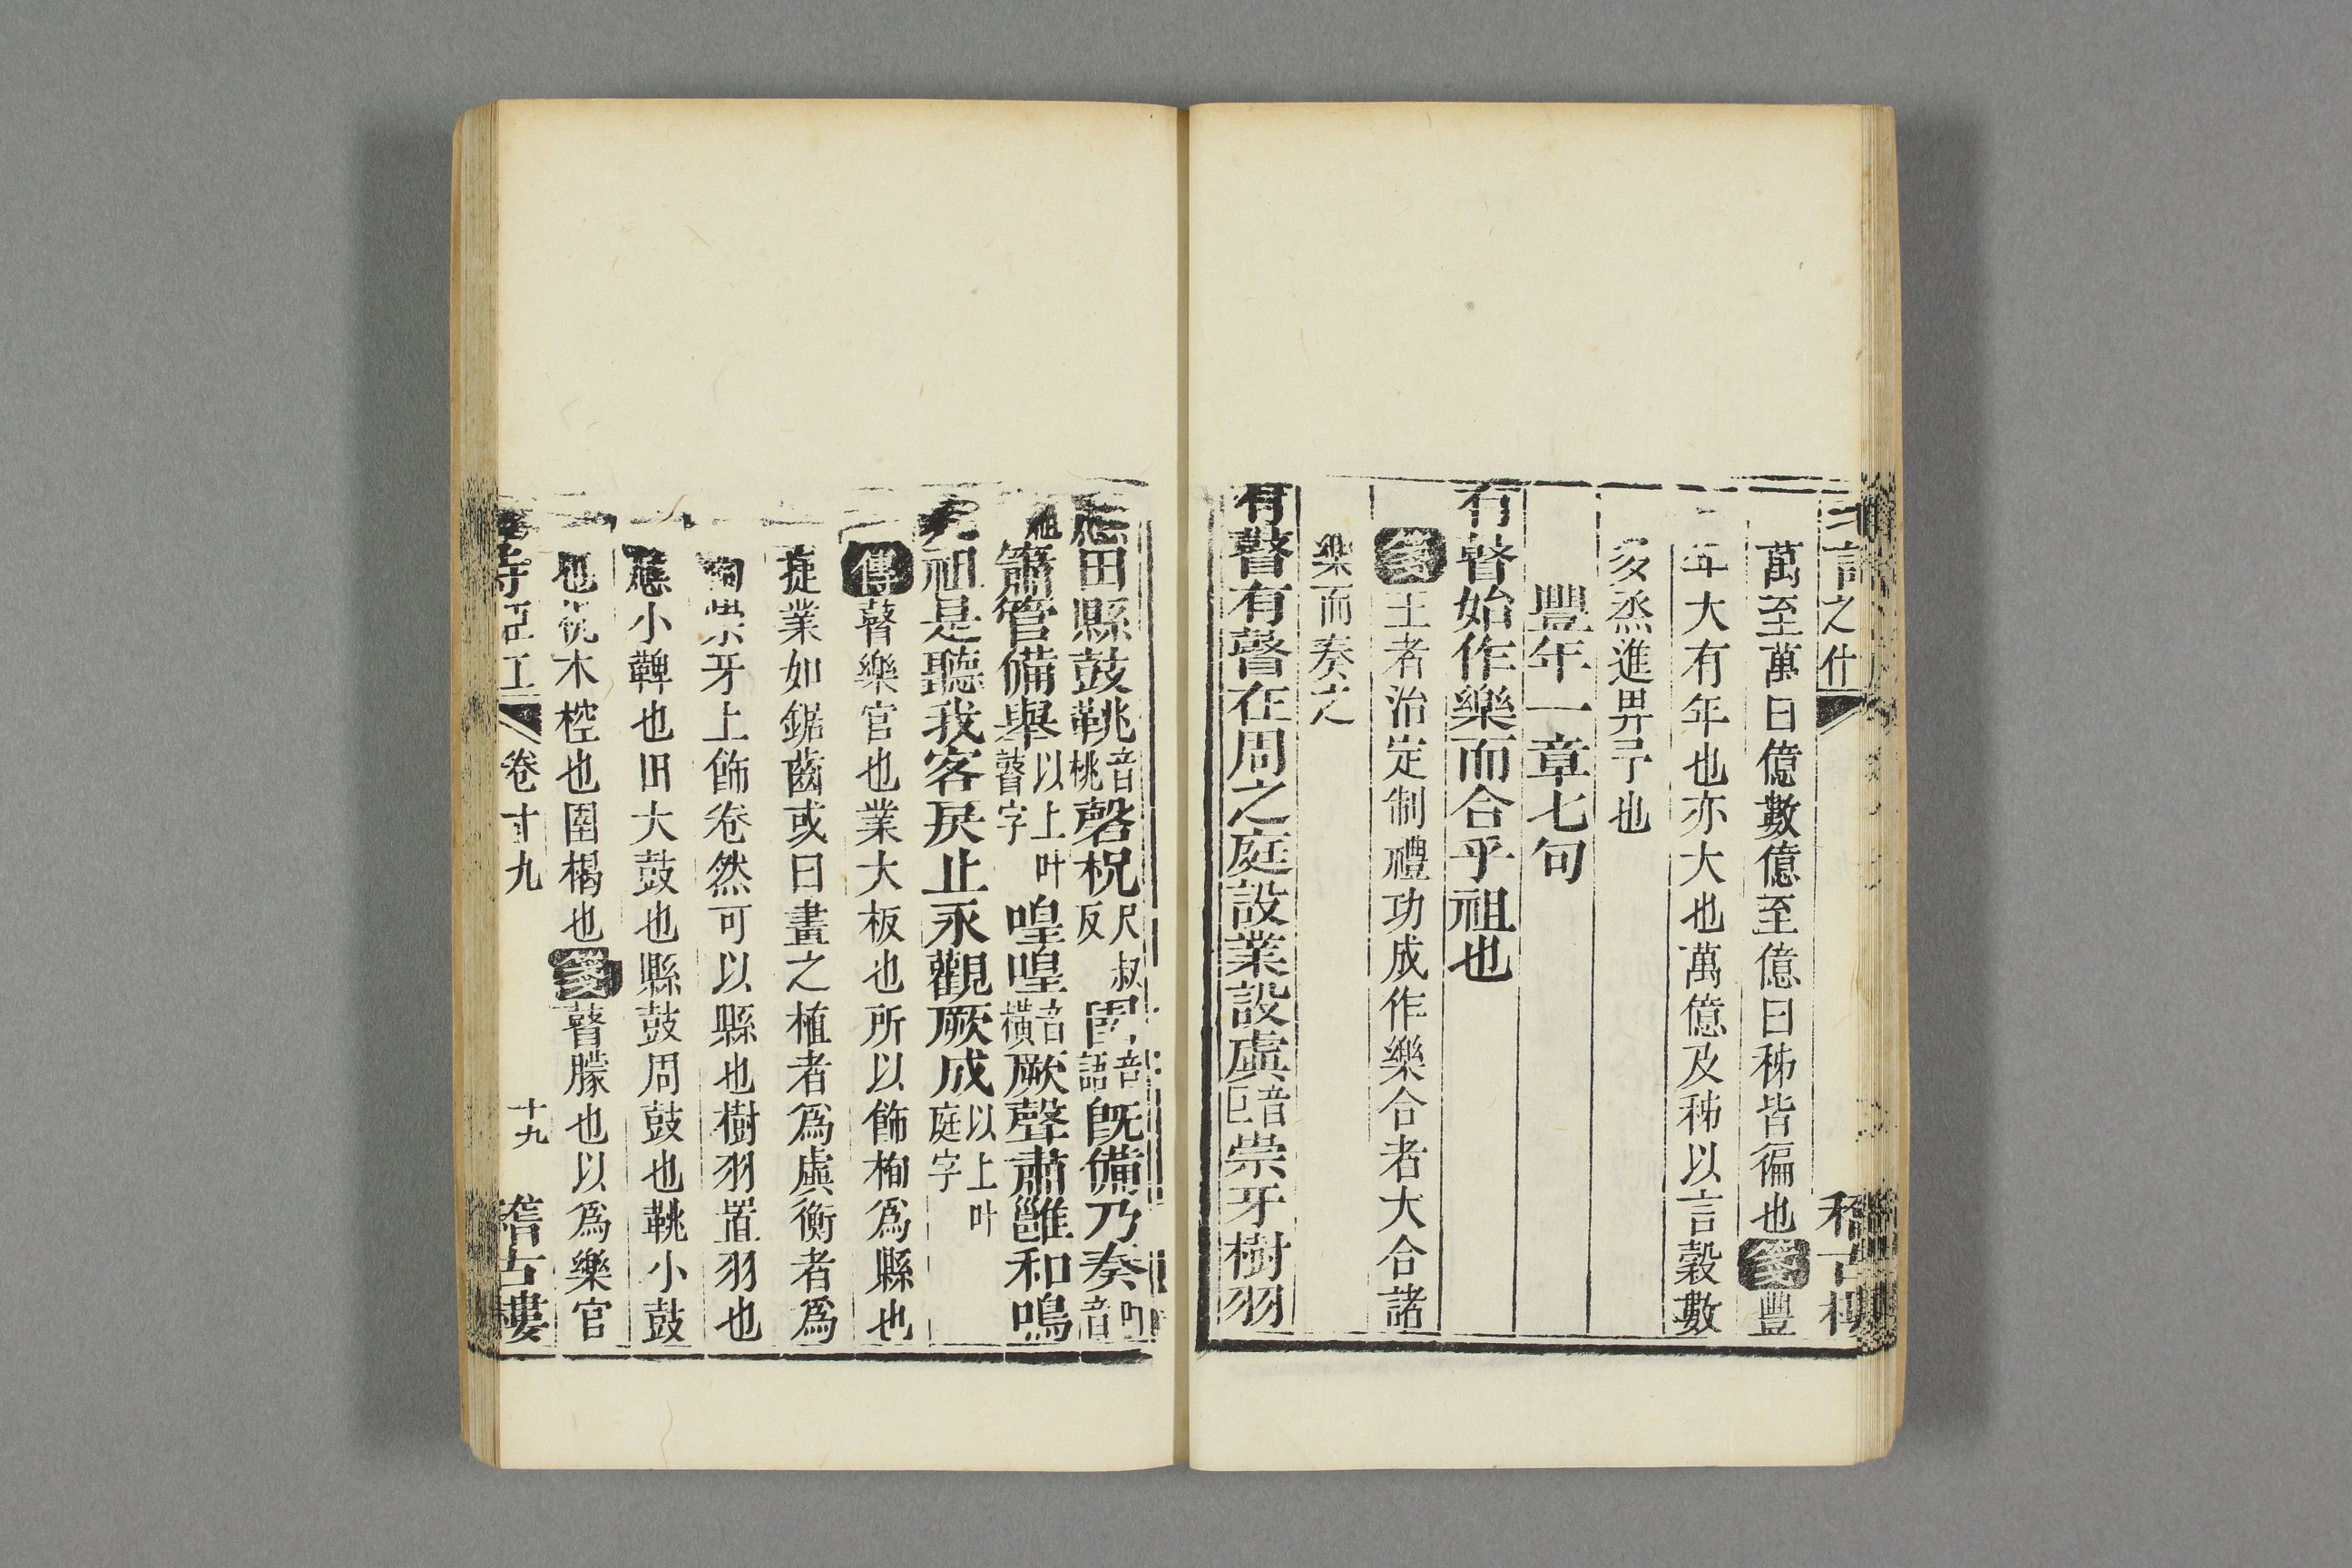 之什 稽古樓
萬至萬曰億數億至億曰秭皆徧也箋豐
年大有年也亦大也萬億及秭以言穀數
多烝進畀予也
豐年一章七句
有瞽始作樂而合乎祖也
箋王者治定制禮功成作樂合者大合諸
樂而奏之
有瞽有瞽在周之庭設業設虡音巨崇牙樹羽
應田縣鼓鞉音桃磬柷尺叔反圉音語旣備乃奏音
簫管備舉以上叶瞽字喤喤音橫厥聲肅雝和鳴
先祖是聽我客戾止永觀厥成以上叶庭字
傳瞽樂官也業大板也所以飾栒爲縣也
捷業如鋸齒或曰畫之植者爲虡衡者爲
栒崇牙上飾卷然可以縣也樹羽置羽也
應小鞞也田大鼓也縣鼓周鼓也鞉小鼓
也柷木椌也圉楬也箋瞽矇也以爲樂官
卷十九 十九 稽古樓